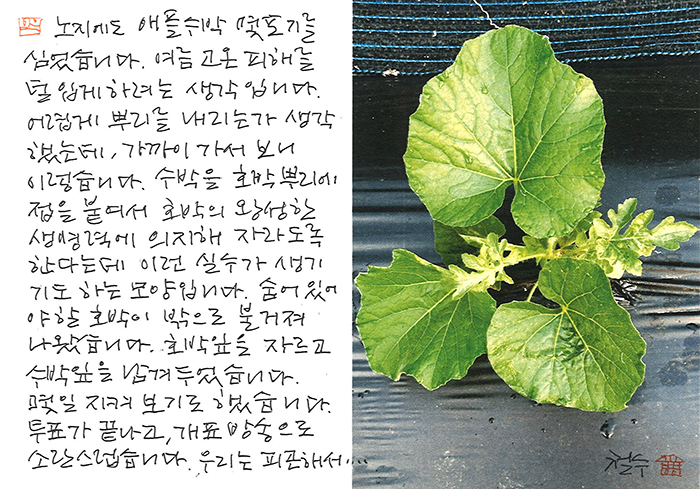 노지에도 애플수박 몇포기를
심었습니다. 여름 고온 피해를
덜 입게 하려는 생각입니다.
어렵게 뿌리를 내리는가 생각
했는데, 가까이 가서 보니
이렇습니다. 수박을 호박뿌리에
접을 붙여서 호박의 왕성한
생명력에 의지해 자라도록
한다는데 이런 실수가 생기
기도 하는 모양입니다. 숨어있어
야할 호박이 밖으로 불거져
나왔습니다. 호박잎을 자르고
수박잎을 남겨두었습니다.
몇일 지켜 보기로 했습니다.
투표가 끝나고, 개표 방송으로
소란스럽습니다. 우리는 피곤해서....
철수